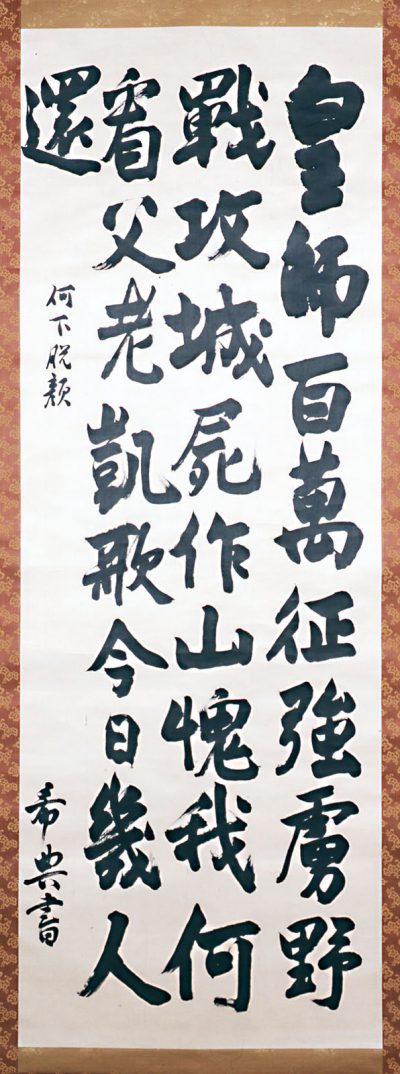 皇師百萬征強虜野
戰攻城屍作山愧我何
看父老凱歌今日幾人
還
何下脱顔
希典書